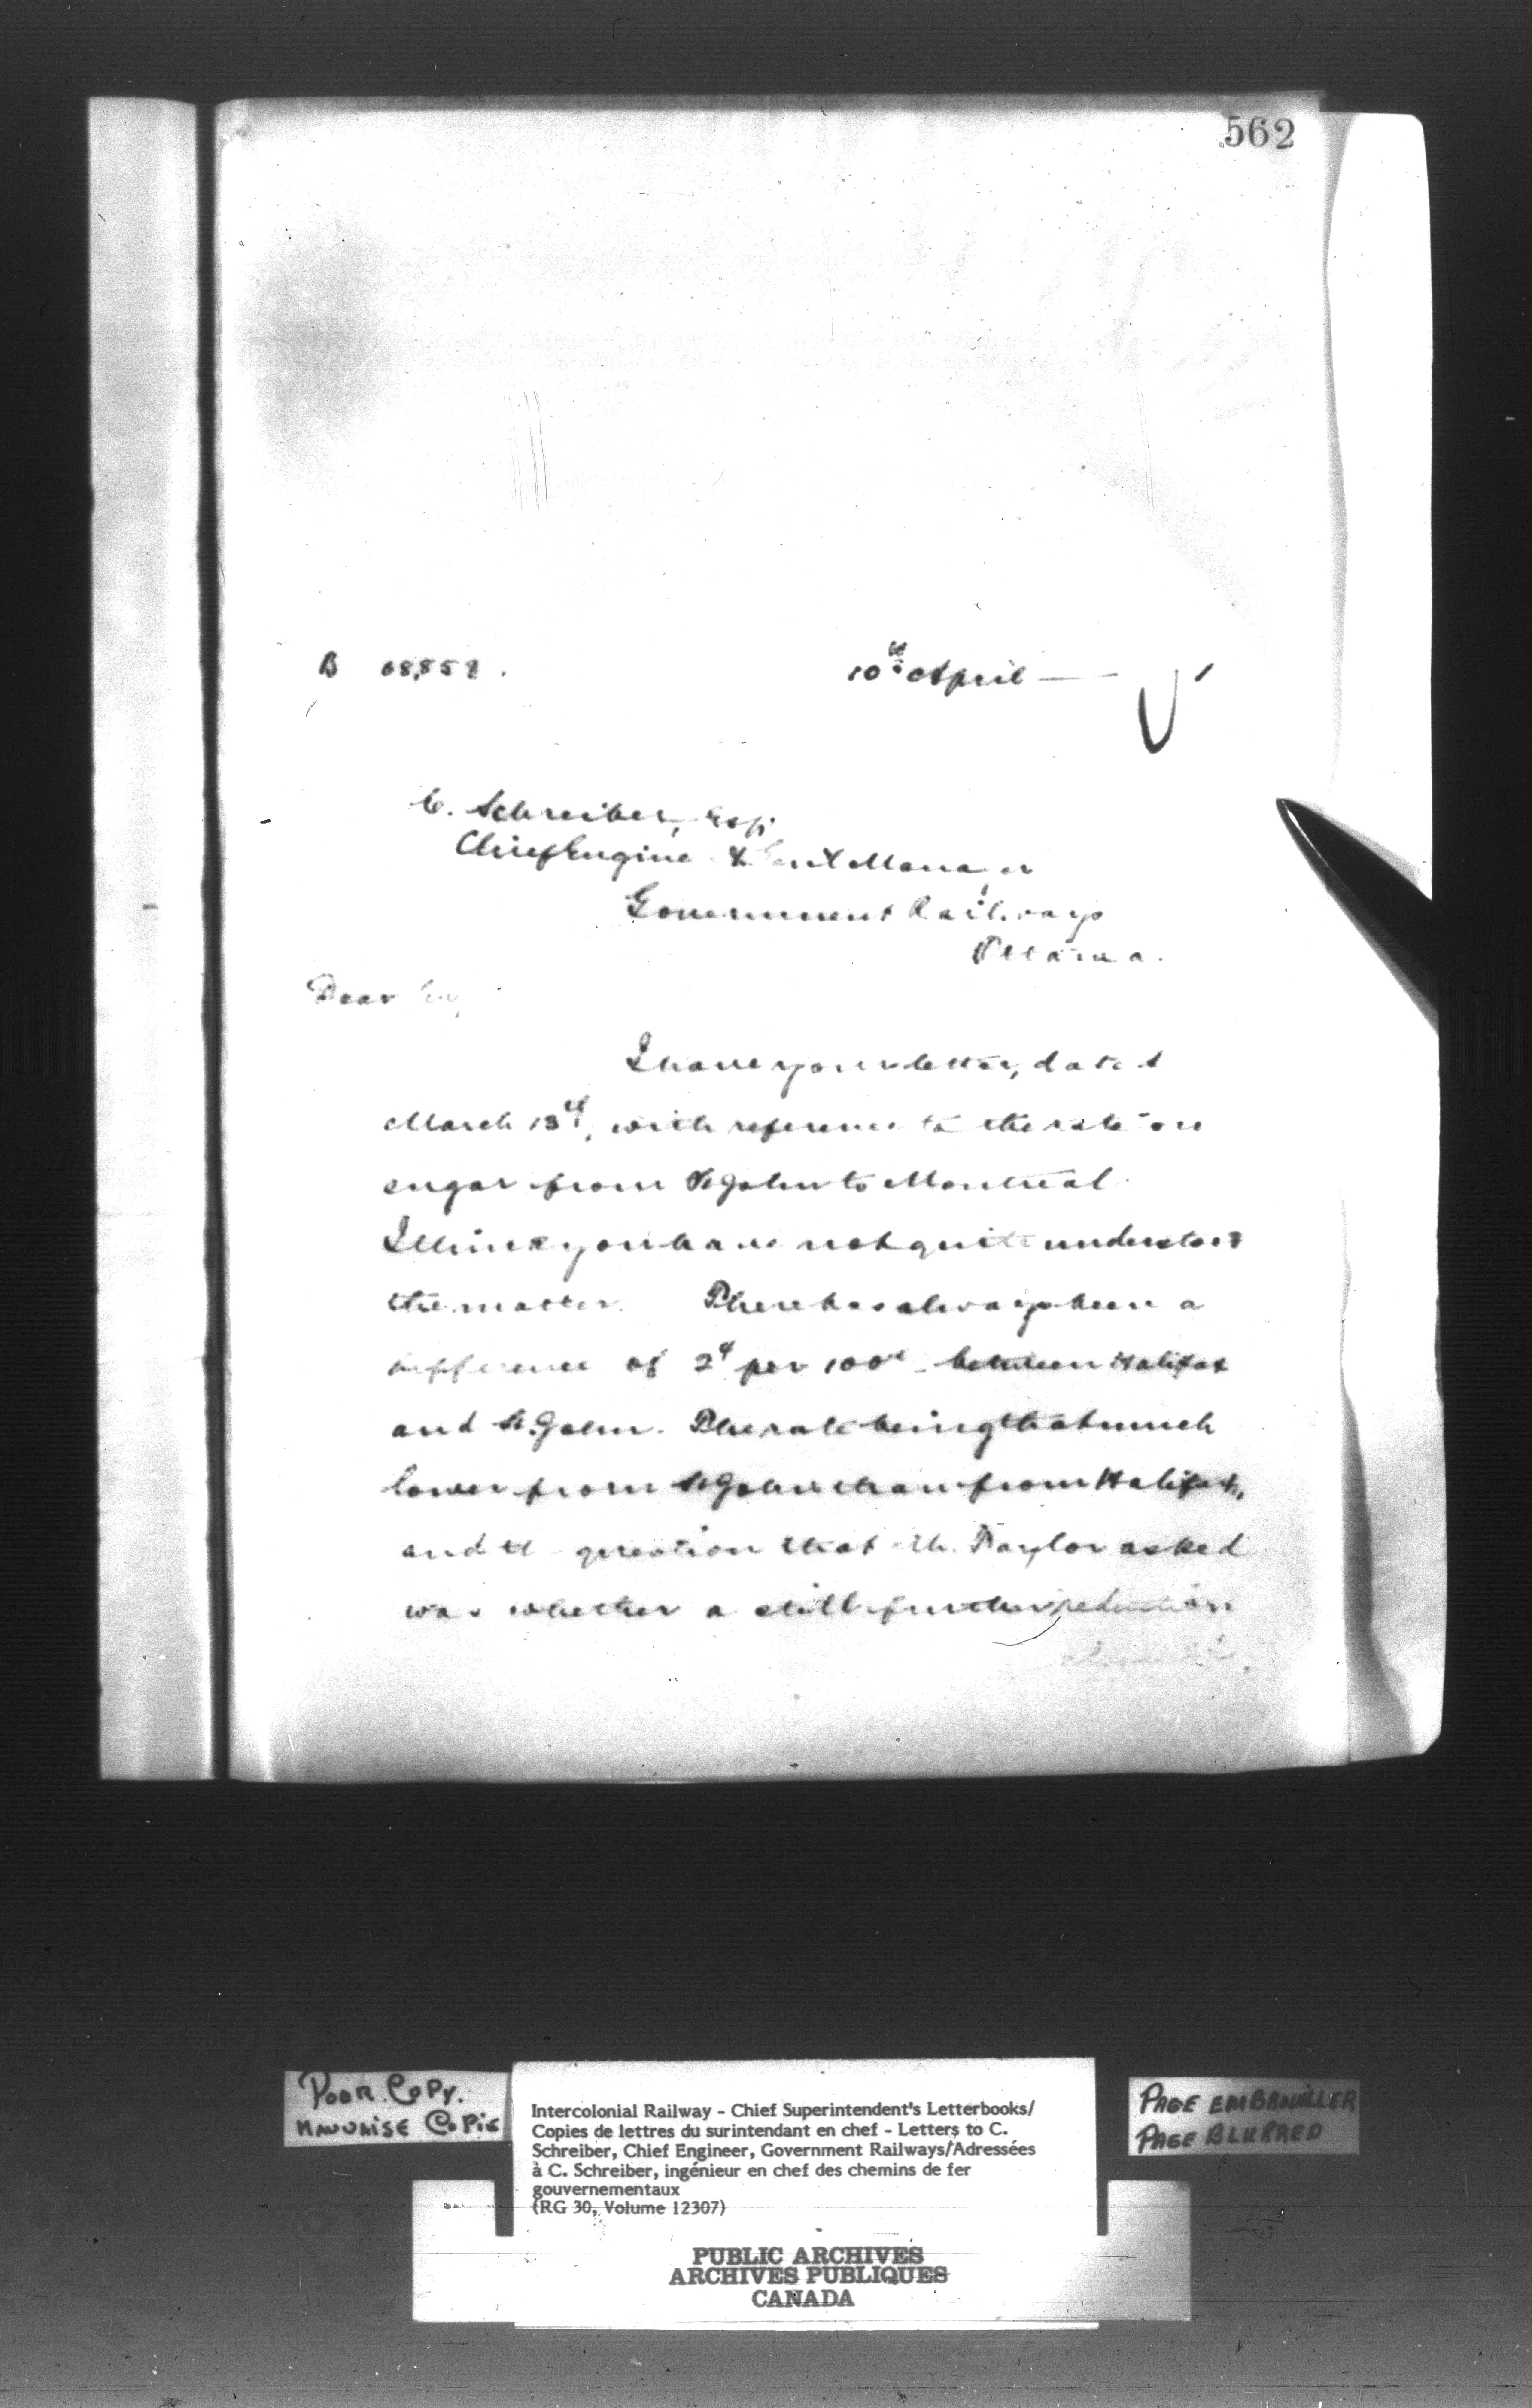 562
B 68,858.
10th April
C. Schreiber, Esq,
Chief Engine & Genl Manager
Government Railways
Ottawa.
Dear Sir,
I have your letter, dated
March 13th, with reference to the rate on
sugar from St John to Montreal.
I think you have not quite understood
the matter. There has always been a
difference of 2c per 100 between Halifax
and St. John. The rate being that much
lower from St John than from Halifax,
and the question that Mr. Taylor asked
was whether a still further reduction
POOR COPY.
MAUVAISE COPIE
Intercolonial Railway - Chief Superintendent's Letterbooks/
Copies de lettres du surintendant en chef - Letters to C.
Schreiber, Chief Engineer, Government Railways/Adressées
à C. Schreiber, ingénieur en chef des chemins de fer
gouvernementaux
(RG 30, Volume 12307)
PAGE EMBROUILLER
PAGE BLURRED
PUBLIC ARCHIVES
ARCHIVES PUBLIQUES
CANADA